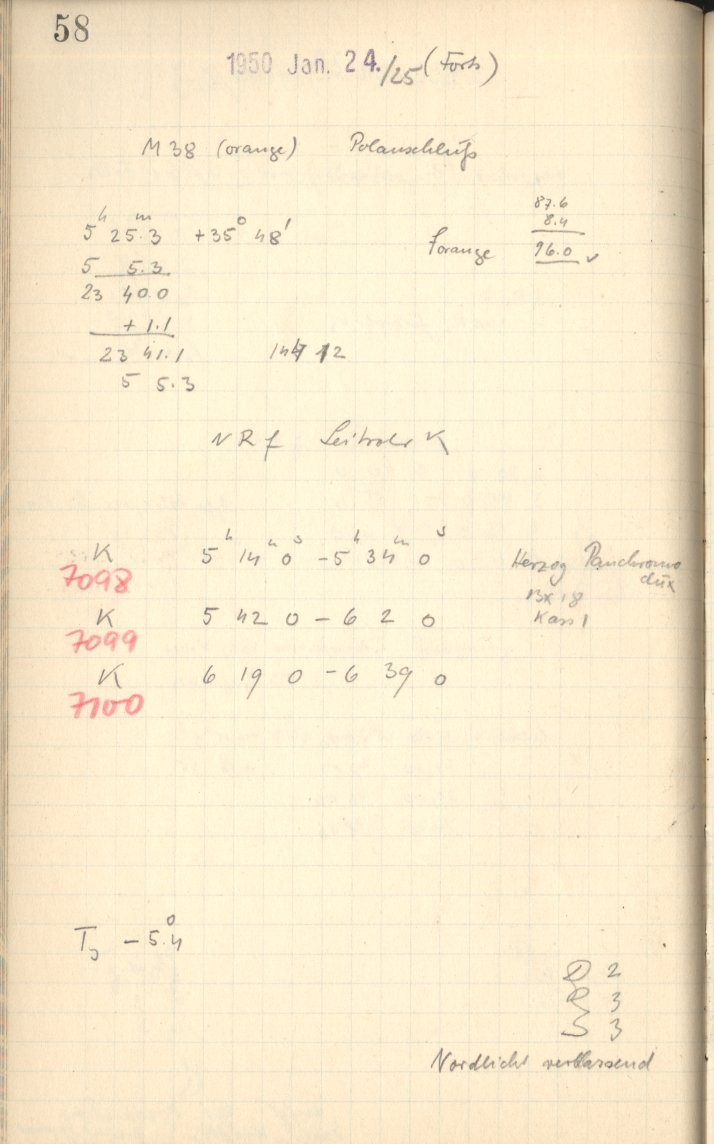 58
1950 Jan. 24./25 (Forts)
M 38 (orange) Polanschluß
5h 25m.3 +35° 48'
5 5.3
23 40.0
+ 1.1
23 41.1
5 5.3
87.6
8.4
forange 96.0 ✓
12
NRf Leitrohr K
K 5h 14m 0s - 5h 34m 0s
7098
K 5 42 0 - 6 2 0
7099
K 6 19 0 - 6 39 0
7100
Herzog Panchromo
dux
Bx 18
Kass 1
T, - 5°.4
D 2
R 3
S 3
Nordlicht verblassend